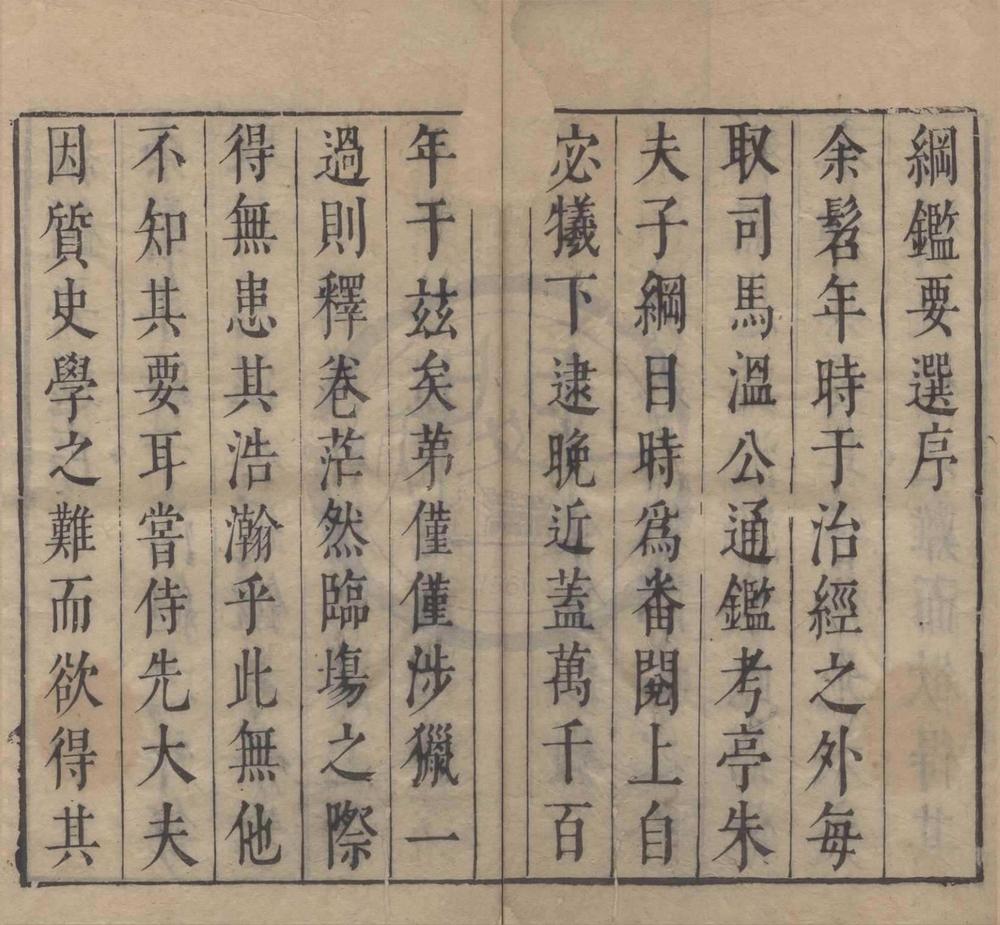 綱鑑要選序
余髫年時于治經之外每
取司馬溫公通鑑考亭朱
夫子綱目時爲畨閱上自
宓犧下逮晚近蓋萬千百
年于茲矣苐僅僅涉獵一
過則釋卷茫然臨塲之際
得無患其浩瀚乎此無他
不知其要耳嘗侍先大夫
因質史學之難而欲得其